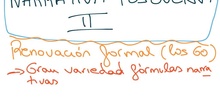 NARRATIVA POSGUERRA
II
Renovación formal (los 60)
→ Gran variedad fórmulas narra
tivas